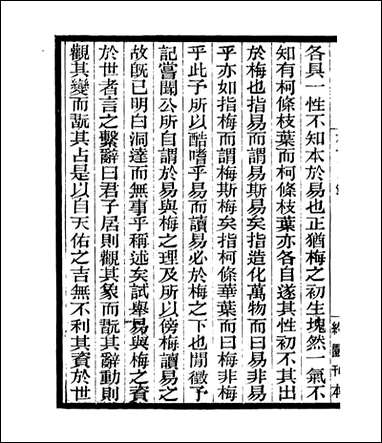 各具一性不知本於易也正猶梅之初生塊然一氣不
知有柯條枝葉而柯條枝葉亦各自遂其性初不其出
於梅也指易而謂易斯易矣指造化萬物而曰易非易
乎亦如指梅而謂梅斯梅矣指柯條華葉而曰梅非梅
乎此予所以酷嗜乎易而讀易必於梅之下也閒徵予
記嘗聞公所自謂於易與梅之理及所以傍梅讀易之
故既已明白洞達而無事乎稱述矣試舉易與梅之資
於世者言之繫辭曰君子居則觀其象而翫其辭動則
觀其變而翫其占是以自天佑之吉無不利其資於世
刊本